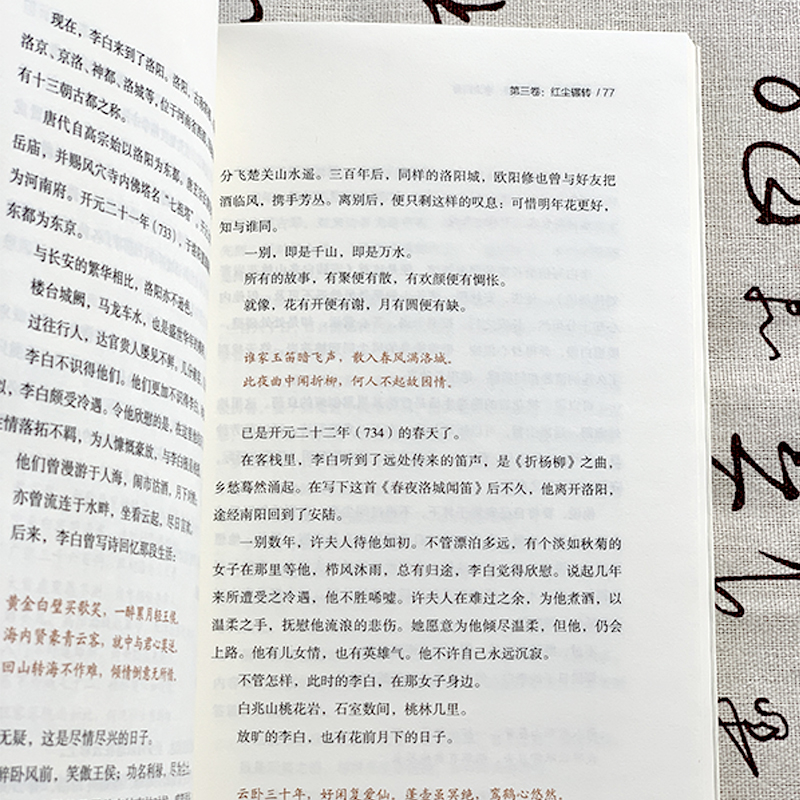 现在，李白来到了洛阳。洛阳，古称
洛京、京洛、神都、洛城等，位于河南省
有十三朝古都之称。
唐代自高宗始以洛阳为东都。
岳庙，并赐风穴寺内佛塔名“七祖塔”，
为河南府。开元二十一年（733），
东都为东京。
与长安的繁华相比，洛阳亦不逊色。
楼台城阙，马龙车水，也是盛世华年的
过往行人，达官贵人屡见不鲜。
李白不识得他们。他们更加不识得李白。
似，李白颇受冷遇。令他欣慰的是，在这里他
情落拓不羁，为人慷慨豪放，与李白
他们曾漫游于人海，闹市沽酒，月下
亦曾流连于水畔，坐看云起，尽日言欢。
后来，李白曾写诗回忆那段生活：
黄金白璧买歌笑，一醉累月轻王侯。
海内贤豪青云客，就中与君心莫逆。
回山转海不作难，倾情倒意无所惜。
无疑，这是尽情尽兴的日子。
醉卧风前，笑傲王侯；功名利禄，尽
第三卷：红尘辗转 / 77
分飞楚关山水遥。三百年后，同样的洛阳城，欧阳修也曾与好友把
酒临风，携手芳丛。离别后，便只剩这样的叹息：可惜明年花更好，
知与谁同。
一别，即是千山，即是万水。
所有的故事，有聚便有散，有欢颜便有惆怅。
就像，花有开便有谢，月有圆便有缺。
谁家玉笛暗飞声，散入春风满洛城。
此夜曲中闻折柳，何人不起故园情。
已是开元二十二年（734）的春天了。
在客栈里，李白听到了远处传来的笛声，是《折杨柳》之曲，
乡愁蓦然涌起。在写下这首《春夜洛城闻笛》后不久，他离开洛阳，
途经南阳回到了安陆。
一别数年，许夫人待他如初。不管漂泊多远，有个淡如秋菊的
女子在那里等他，栉风沐雨，总有归途，李白觉得欣慰。说起几年
来所遭受之冷遇，他不胜唏嘘。许夫人在难过之余，为他煮酒，以
温柔之手，抚慰他流浪的悲伤。她愿意为他倾尽温柔，但他，仍会
上路。他有儿女情，也有英雄气。他不许自己永远沉寂。
不管怎样，此时的李白，在那女子身边。
白兆山桃花岩，石室数间，桃林几里。
放旷的李白，也有花前月下的日子。
云卧三十年，好闲复爱仙。蓬壶虽冥绝，鸾鹤心悠然。